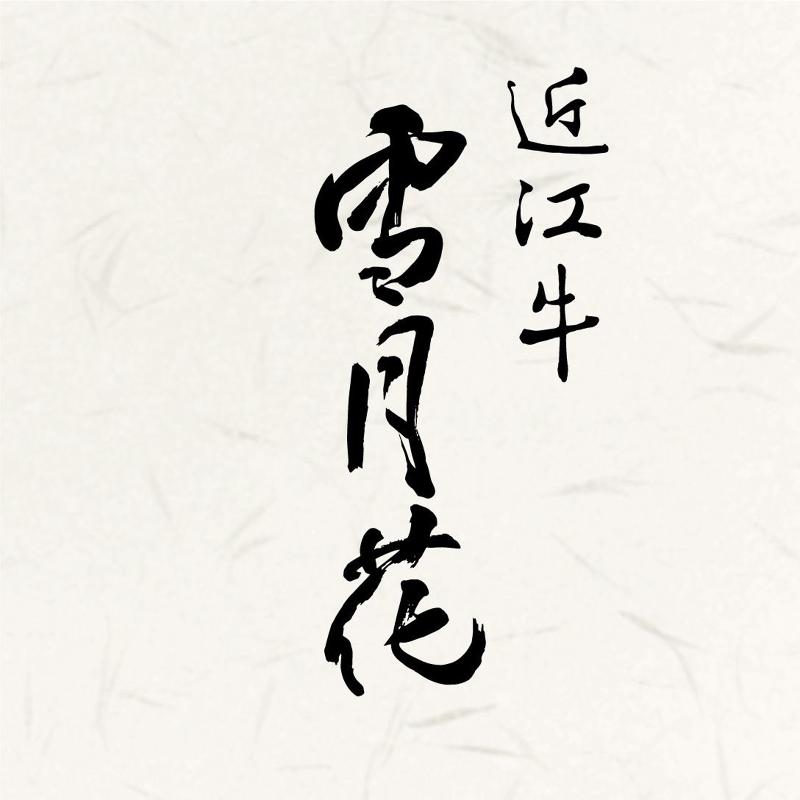 近江牛
雪月花